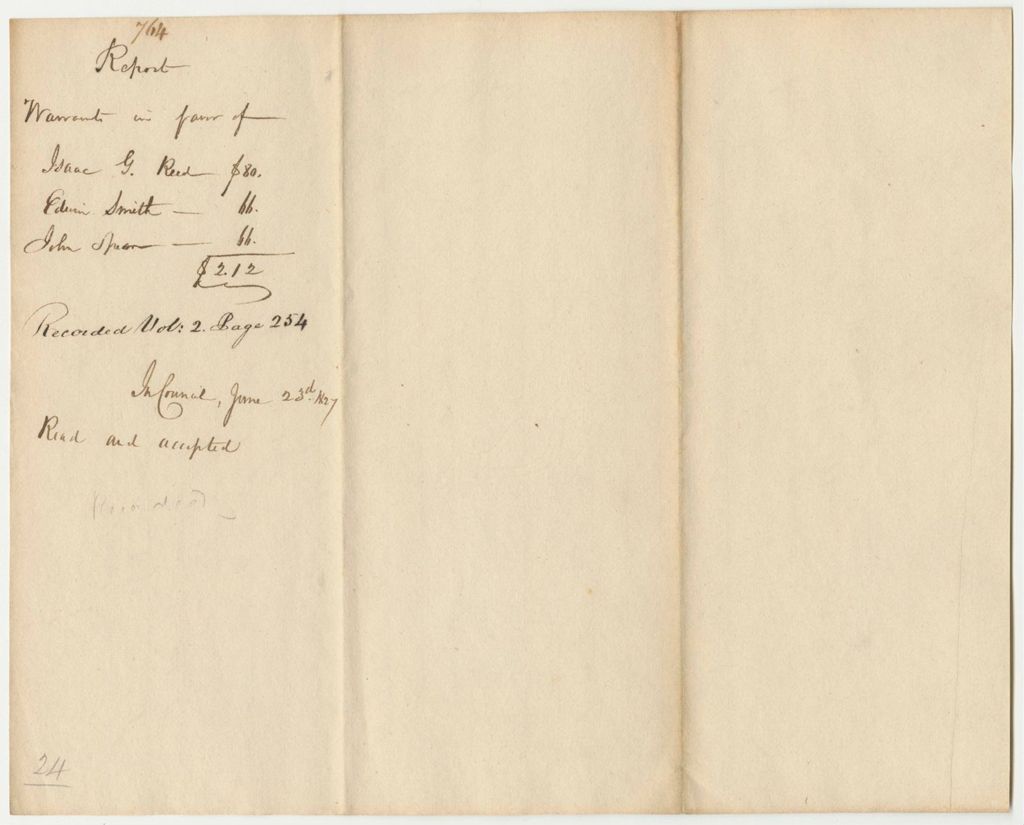 764
Report
Warrants in favor of
Isaac G. Reed $80.
Edwin Smith — 66.
John Spear — 66.
$2.12
Recorded Vol: 2. Page 254
In Council, June 23d. 1827
Read and accepted
Recorded
24